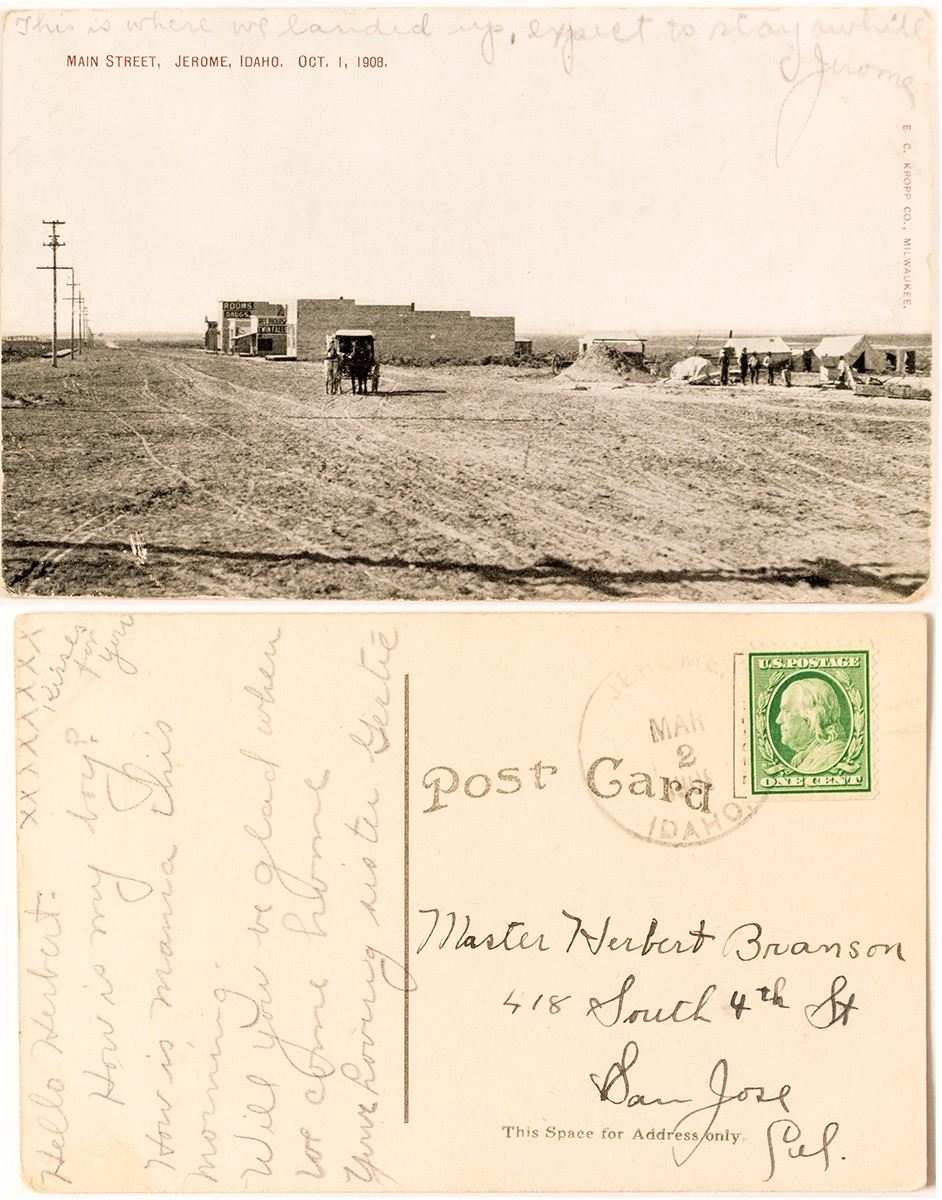 This is where we landed up, expect to stay awhile
Jerome
MAIN STREET, JEROME, IDAHO. OCT. 1, 1908.
E. C. KROPP CO., MILWAUKEE.
ROOMS
DRUGS
TWIN FALLS
xxxxxxxx
Kisses
for
you
Hello Herbert:
How is my boy?
How is mama this
morning.
Will you be glad when
we come home
Your loving sister Gertie
Post Card
JEROME,
MAR
2
IDAHO.
U.S. POSTAGE
ONE CENT
Master Herbert Branson
418 South 4th St
San Jose
Cal.
This Space for Address only.